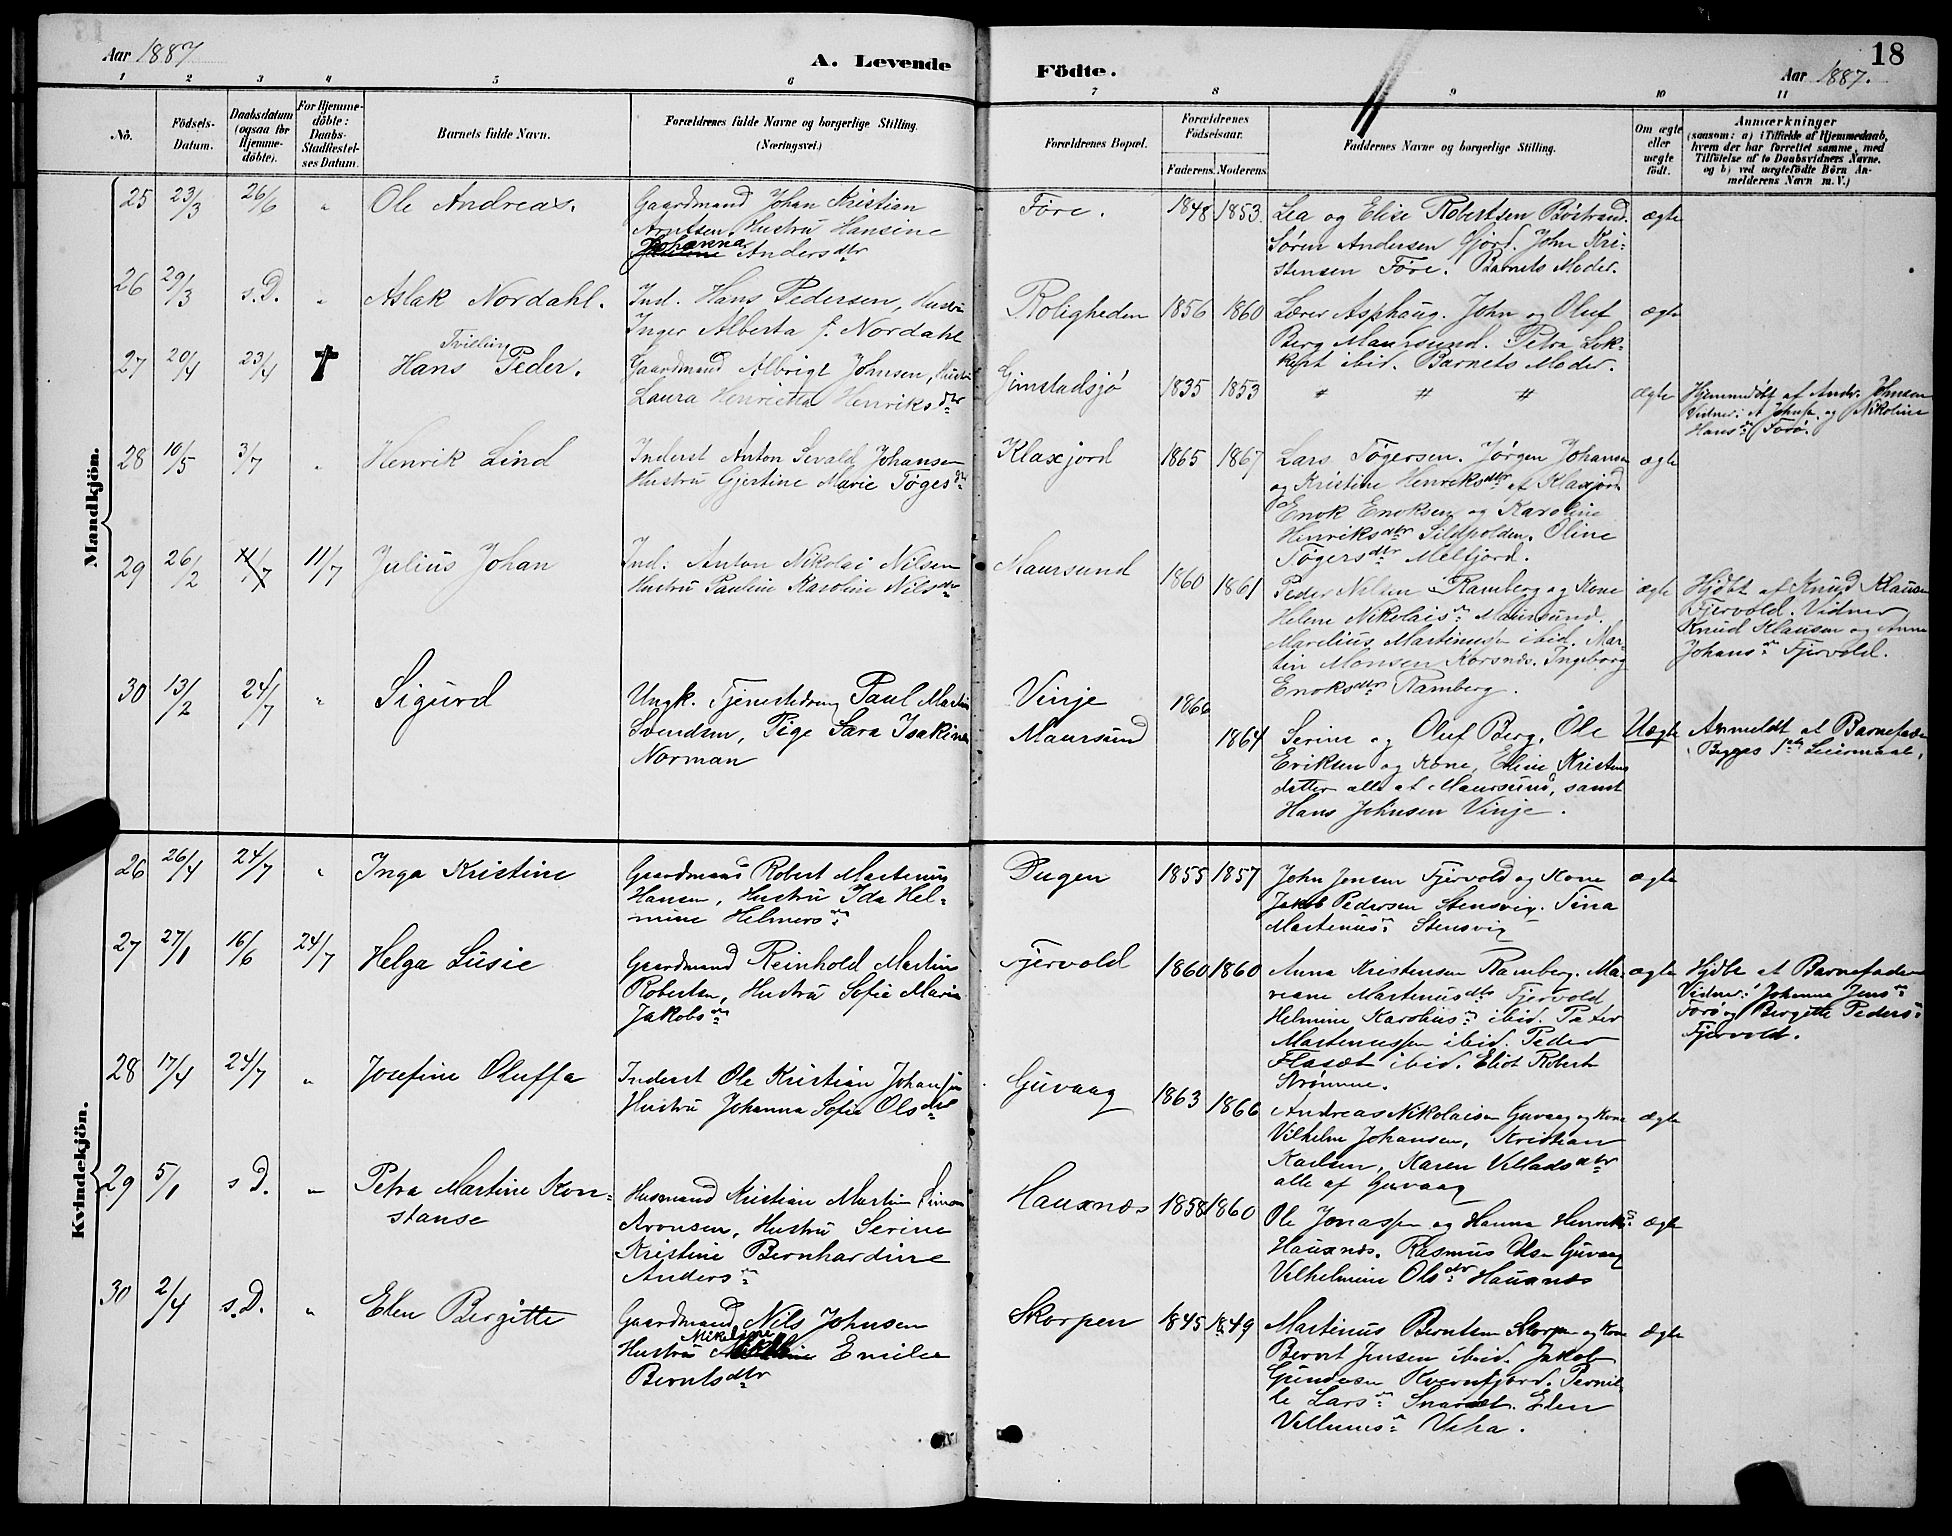 18
Aar 1887
A. Levende
Födte.
Aar 1887.
1 2 3 4 5 6 7 8 9 10 11
Nö.
Födsels-
Datum.
Daabsdatum
(ogsaa for
Hjemme-
döbte).
For Hjemme-
döbte:
Daabs-
Stadfæstel-
ses Datum.
Barnets fulde Navn.
Forældrenes fulde Navne og borgerlige Stilling.
(Næringsvei.)
Forældrenes Bopæl.
Forældrenes
Födselsaar.
Faderens. Moderens.
Faddernes Navne og borgerlige Stilling.
Om ægte
eller
uægte
födt.
Anmærkninger
(saasom: a) i Tilfælde af Hjemmedaab,
hvem der har forrettet samme, med
Tilföielse af to Daabsvidners Navne.
og b) ved uægtefödte Börn An-
melderens Navn m. V.)
Mandkjön.
25 23/3 26/6 " Ole Andreas.
Gaardmand Johan Kristian
Arntsen, Hustru Hansine
Johanna Andersdtr
Føre. 1848 1853.
Lea og Elise Robertsen Bøstrand.
Søren Andersen Gjørd. John Kri-
stensen Føre. Barnets Moder.
ægte
26 29/3 s.D. " Aslak Nordahl.
Ind. Hans Pedersen, Hustru
Inger Alberta f. Nordahl
Roligheden 1856 1860
Lærer Asphaug. John og Oluf
Berg Maursund. Petra
ibid. Barnets Moder.
ægte
27 20/4 23/4 † Tvilling
Hans Peder.
Gaardmand Albrigt Johnsen, Hustru
Laura Henrietta Henriksdtr
Gimstadsjø 1835 1853 " " "
ægte
Hjemmedøbt af Andr. Johnsen
Vidner: A Johns. og Nikoline
Hansdr Forø.
28 10/5 3/7 " Henrik Lind
Inderst Anton Sevald Johansen
Hustru Gjertine Marie Tøgesdtr
Klaxjord 1865 1867
Lars Tøgersen. Jørgen Johansen
og Kristine Henriksdtr af Klaxjord
Enok Enoksen og Karoline
Henriksdtr Sildpolden. Oline
Tøgersdtr Melfjord.
ægte
29 26/2 11/7 11/7 Julius Johan
Ind. Anton Nikolai Nilsen
Hustru Pauline Karoline Nilsdr
Maursund 1860 1861
Peder Nilsen Ramberg og Kone
Helene Nikolaisdr Maursund.
Marelius Martinussen ibid. Mar-
tin Monsen Korsnæs. Ingeborg
Enoksdtr Ramberg.
ægte
Hjdbt af Knud Klausen
Fjervold. Vidner
Knud Klausen og Anne
Johansdr Fjervold.
30 13/2 24/7 " Sigurd
Ungk. Tjenestedreng Paul Martin
Svendsen, Pige Sara Joakine
Norman
Vinje 1866
Maursund 1864
Serine og Oluf Berg, Ole
Eriksen og Kone, Eline Kristens
datter alle af Maursund, samt
Hans Johnsen Vinje.
Uægte
Anmeldt af Barnefaderen
Begges 1ste Leiermaal.
Kvindekjön.
26 26/4 24/7 " Inga Kristine
Gaardmand Robert Martinus
Hansen, Hustru Ida Hel-
mine Helmersdr
Pugen 1855 1857
John Jensen Fjervold og Kone
Jakob Pedersen Stensvig. Tina
Martinusdr Stensvig
ægte
27 27/1 16/6 24/7 Helga Lusie
Gaardmand Reinhold Martin
Robertsen, Hustru Sofie Marie
Jakobsdr
Fjervold 1860 1860
Anna Kristensen Ramberg. Ma-
reane Martinusdtr Fjervold
Helmine Karoliusdr ibid. Peter
Martinussen ibid. Peder
Flasæt ibid. Eliot Robert
Strømme.
ægte
Hjdbt af Barnefaderen
Vidner: Johanna Jensdr
Forø og Bergitte Pedersdr
Fjervold.
28 17/4 24/7 " Josefine Oluffa
Inderst Ole Kristian Johansen
Hustru Johanna Sofie Olsdtr
Guvaag 1863 1866
Andreas Nikolaisen Guvaag og Kone
Vilhelm Johansen, Kristian
Karlsen, Karen Villadsdtr
alle af Guvaag
ægte
29 5/1 s D. " Petra Martine Kon-
stanse
Husmand Kristian Martin Simon
Aronsen, Hustru Serine
Kristine Bernhardine
Andersdr
Hauxnæs 1858 1860
Ole Jonassen og Hanna Henriksdr
Hauxnæs. Rasmus Olsen Guvaag
Vilhelmine Olsdtr Hauxnæs
ægte
30 2/4 s.D. " Elen Bergitte
Gaardmand Nils Johnsen
Mikeline
Hustru Emilie
Berntsdtr
Skorpen 1845 1849
Martinus Berntsen Skorpen og Kone
Bernt Jensen ibid. Jakob
Gundersen Kvernfjord. Pernil-
le Larsdr Snarset. Elen
Villumsdr Vika.
ægte